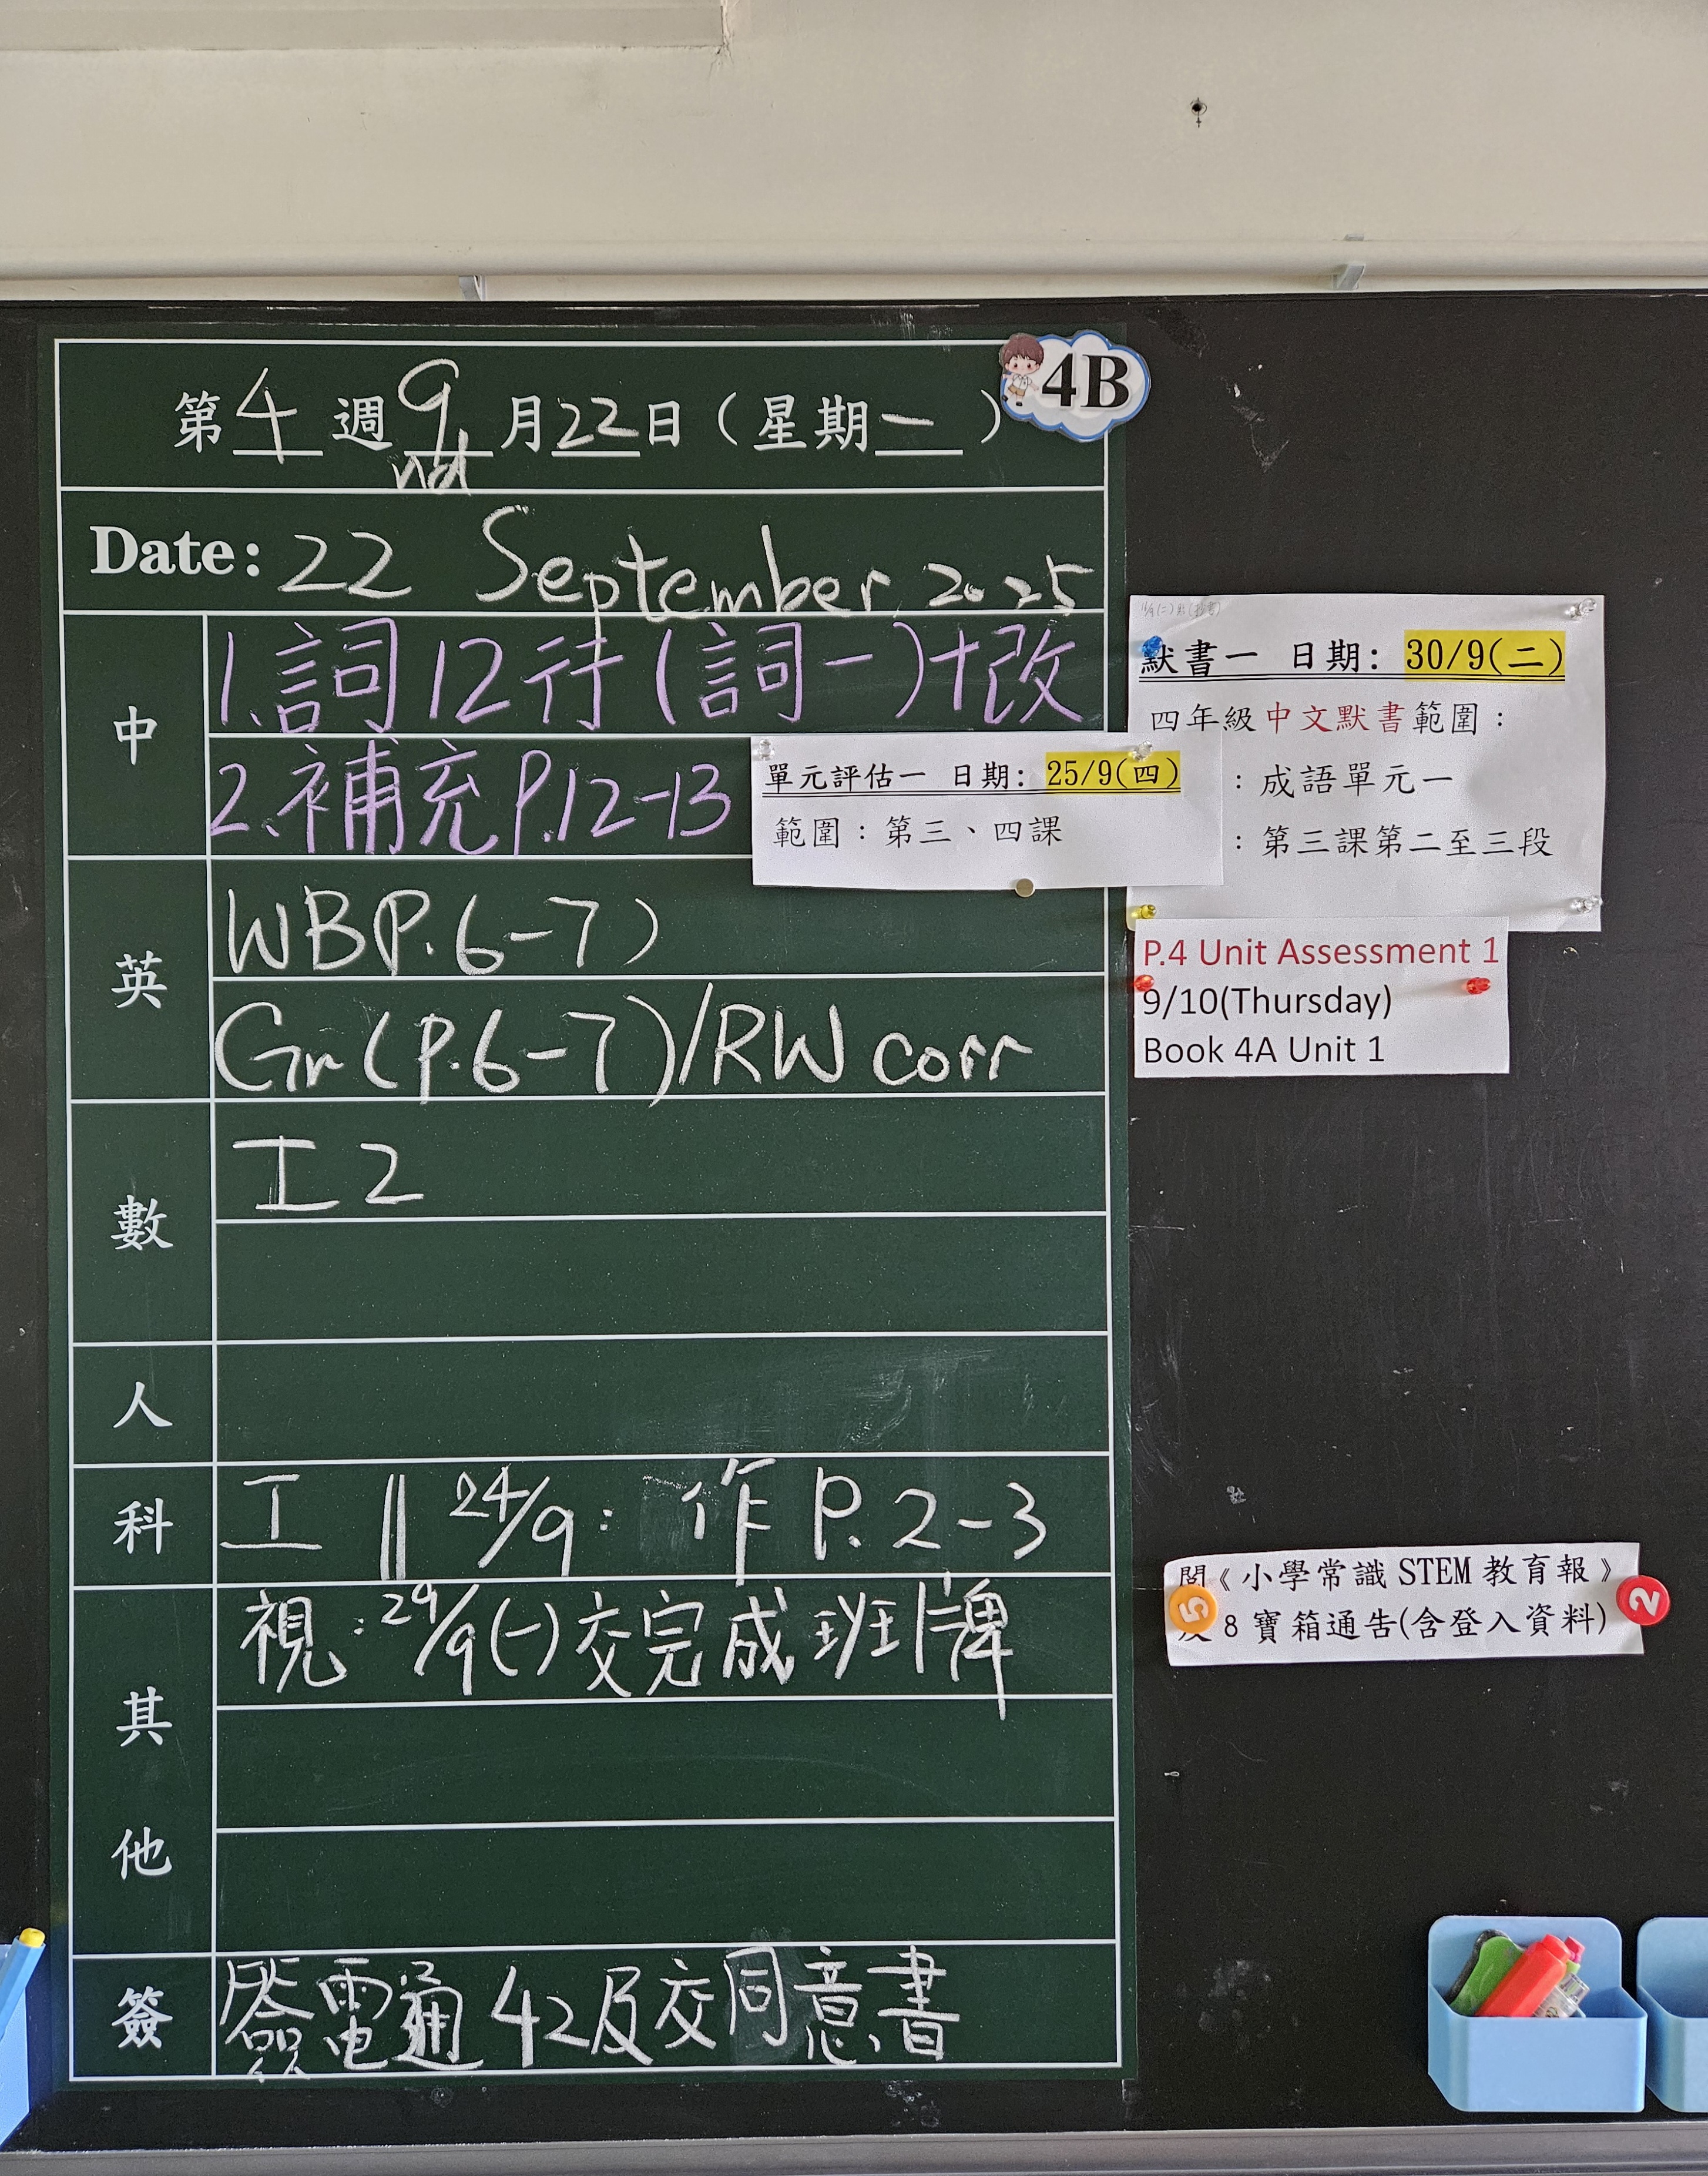 第4週9月22日(星期一)
4B
Date: 22nd September 2025
中
1.詞12行(詞一)+改
2.補充P.12-13
英
WB(P.6-7)
Gr(P.6-7)/RW corr
數
工2
人
科
工 || 24/9: 作 P.2-3
其他
視:29/9(一)交完成班牌
簽
簽電通42及交同意書
默書一 日期: 30/9(二)
四年級中文默書範圍:
: 成語單元一
: 第三課第二至三段
單元評估一 日期: 25/9(四)
範圍:第三、四課
P.4 Unit Assessment 1
9/10(Thursday)
Book 4A Unit 1
閱《小學常識 STEM 教育報》
及 8 寶箱通告(含登入資料)
5
2